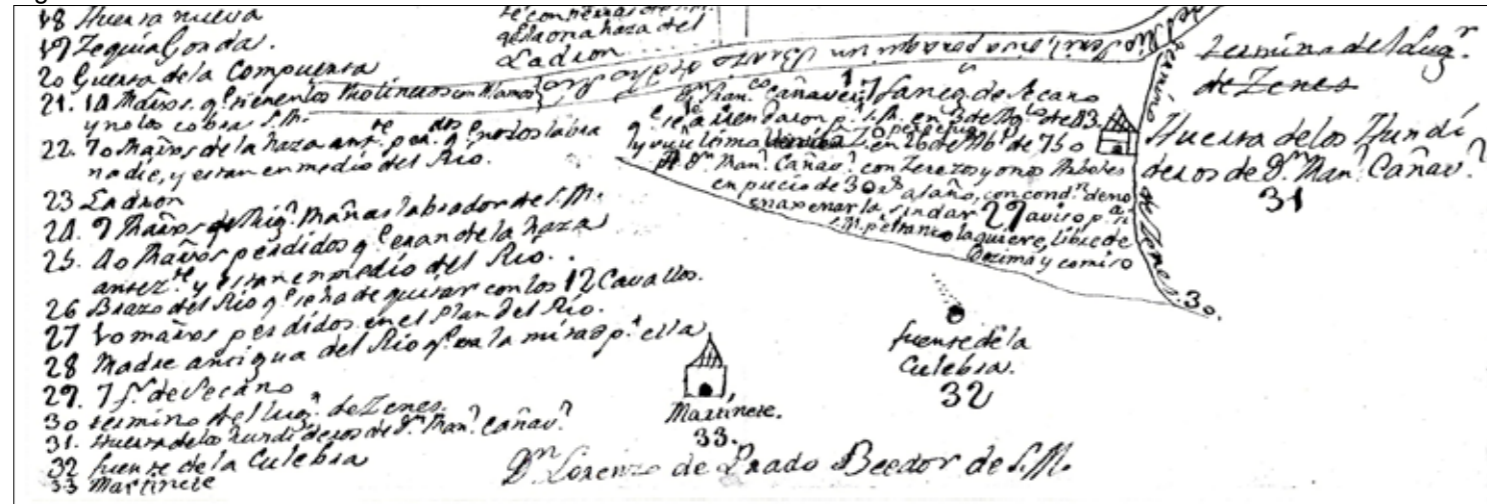 18 Huerta nueva
19 Zequia Gorda.
20 Guerta de la Compuerta
21. 10 Mar.os q.e tienen los Molineros
y no los cobra S.M.
22. 70 Mar.os de la haza ant.te per.dos q.e no los labra
nadie, y estan en medio del Rio.
23 Ladron
24. 9 Mar.os de Mig.l Mañas labrador de S.M.
25. 40 Mar.os perdidos q.e eran de la haza
antez.te y estan en medio del Rio.
26 Brazo del Rio q.e se ha de quitar con los 12 Cavallos.
27 10 mar.os perdidos en el Plan del Rio.
28 Madre antigua del Rio q.e va la mitad p.r ella
29. 7 f.s de Secano
30 termino del lug.r de Zenes.
31. Huerta de los hundideros de D.n Man.l Cañav.l
32 fuente de la Culebra
33 Martinete
haza del
Ladron
Rio Jenil, en un Brazo de dho Rio
D.n Fran.co Cañaver.l 7 faneg.s de Secano
q.e se arrendaron p.r S.M. en 3 de Ag.to de 83
y en 26 de Ab.l de 750
A D.n Man.l Cañav.l con Zerezos y otros Arboles
en precio de 30 r.s al año, con cond.n de no
enagenarla, sin dar 29 aviso p.a si
S.M. la quiere, libre de
Dezima y comiso
termino
de Zenes. 30.
Termino del Lug.r
de Zenes
Huerta de los Hundi
deros de D.n Man.l Cañav.l
31
fuente de la
Culebra.
32
Martinete.
33.
D.n Lorenzo de Prado Beedor de S.M.